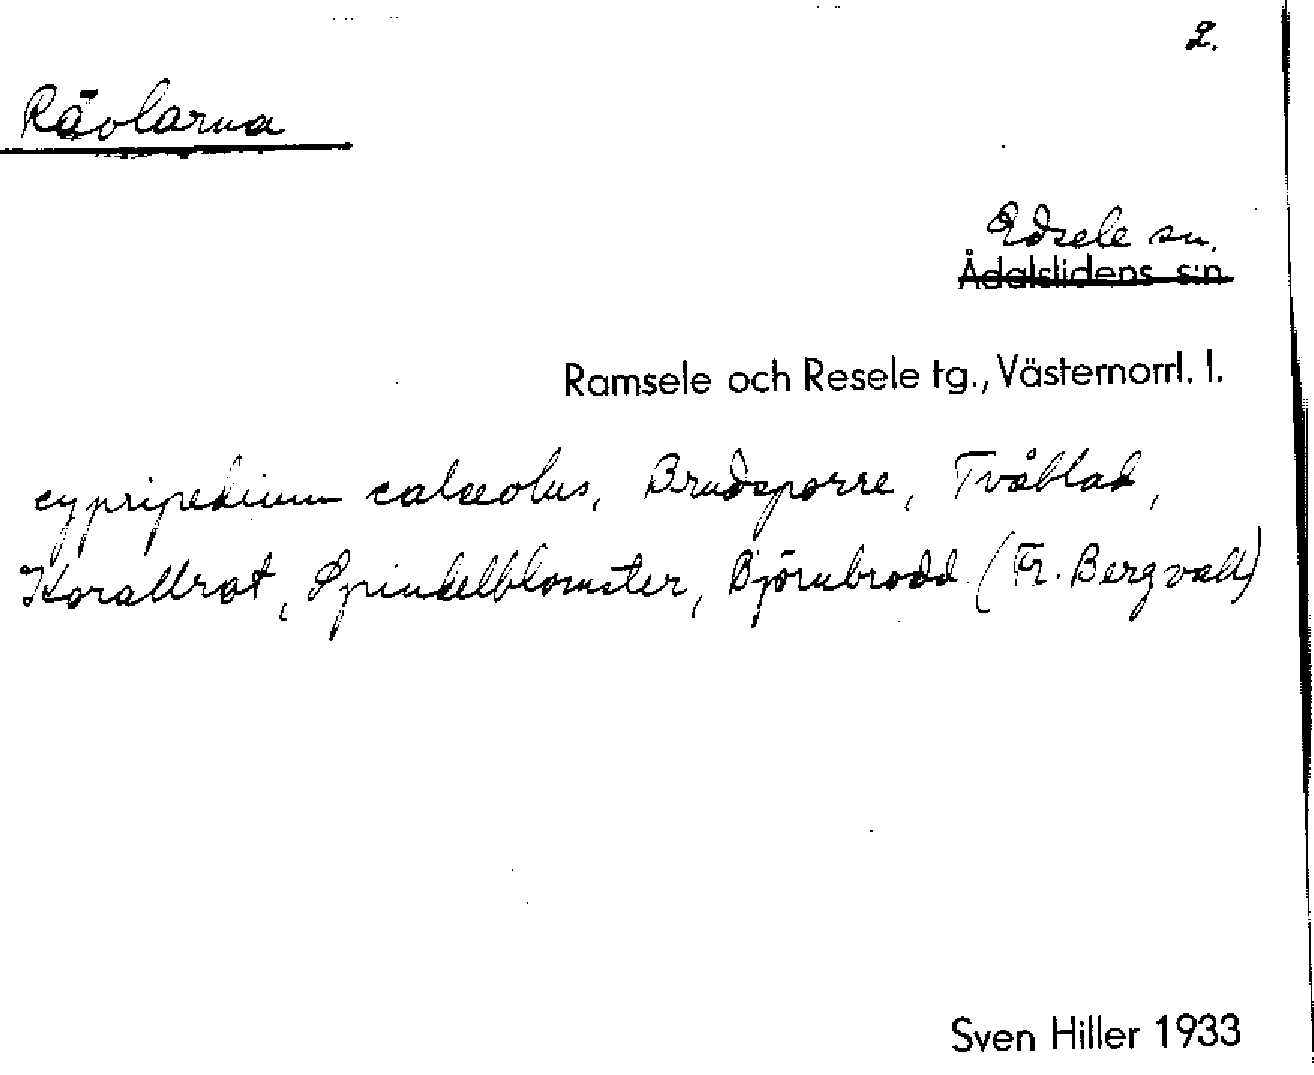 2.
Rävlarna
Edsele sn.
Ådalslidens s:n
Ramsele och Resele tg., Västernorrl. l.
cypripedium calceolus, Brudsporre, Tvåblad,
Korallrot, Spindelblomster, Björnbrodd (Fr. Bergvall)
Sven Hiller 1933